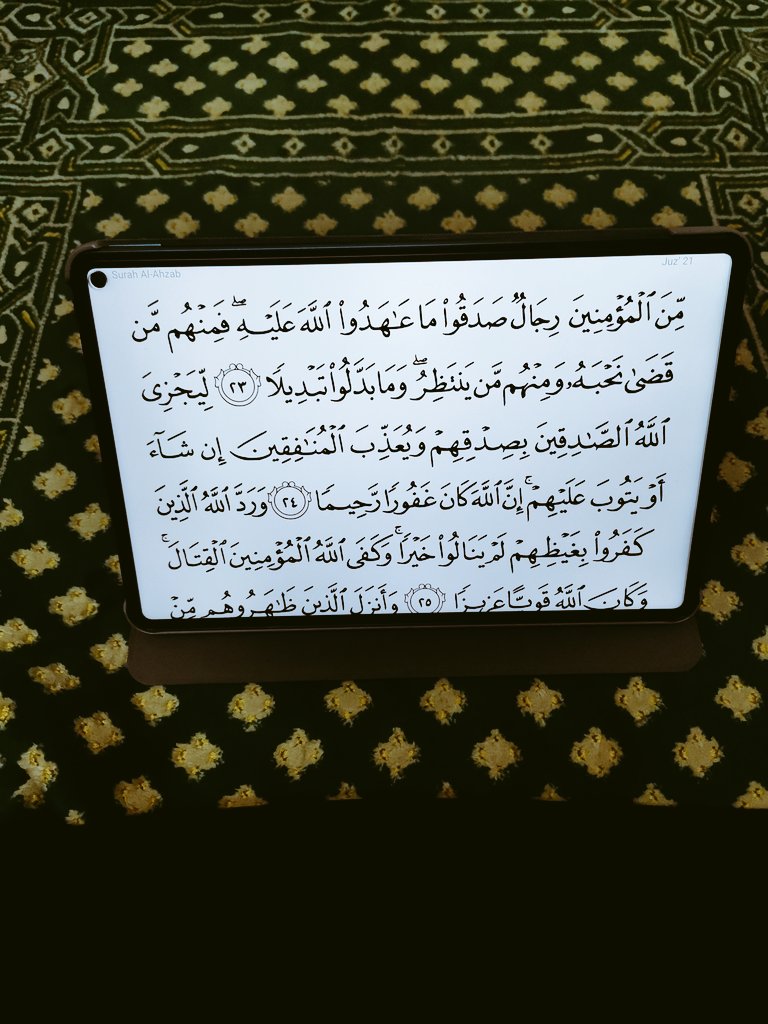 Surah Al-Ahzab
Juz' 21
مِّنَ ٱلْمُؤْمِنِينَ رِجَالٌ صَدَقُوا۟ مَا عَـٰهَدُوا۟ ٱللَّهَ عَلَيْهِ ۖ فَمِنْهُم مَّن
قَضَىٰ نَحْبَهُۥ وَمِنْهُم مَّن يَنتَظِرُ ۖ وَمَا بَدَّلُوا۟ تَبْدِيلًا ٢٣ لِّيَجْزِىَ
ٱللَّهُ ٱلصَّـٰدِقِينَ بِصِدْقِهِمْ وَيُعَذِّبَ ٱلْمُنَـٰفِقِينَ إِن شَآءَ
أَوْ يَتُوبَ عَلَيْهِمْ ۚ إِنَّ ٱللَّهَ كَانَ غَفُورًا رَّحِيمًا ٢٤ وَرَدَّ ٱللَّهُ ٱلَّذِينَ
كَفَرُوا۟ بِغَيْظِهِمْ لَمْ يَنَالُوا۟ خَيْرًا ۚ وَكَفَى ٱللَّهُ ٱلْمُؤْمِنِينَ ٱلْقِتَالَ ۚ
وَكَانَ ٱللَّهُ قَوِيًّا عَزِيزًا ٢٥ وَأَنزَلَ ٱلَّذِينَ ظَـٰهَرُوهُم مِّنْ